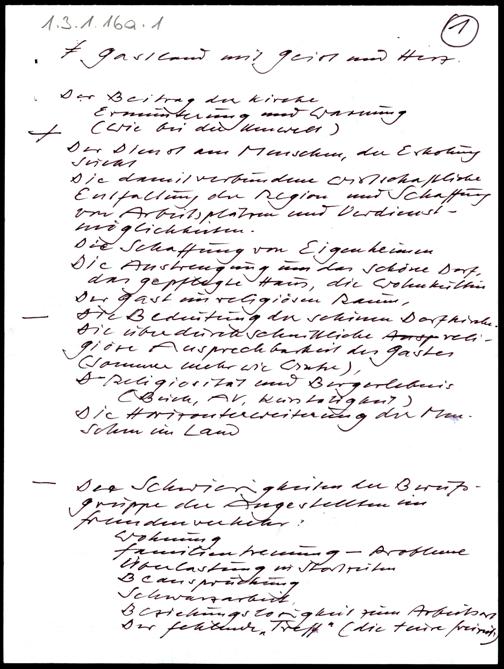 1.3.1.16a.1
1
Gastland mit Geist und Herz.
Der Beitrag der Kirche
Ermunterung und Warnung
(wie bei der Umwelt)
Der Dienst am Menschen, der Erholung
sucht
Die damit verbundene wirtschaftliche
Entfaltung der Region und Schaffung
von Arbeitsplätzen und Verdienst-
möglichkeiten.
Die Schaffung von Eigenheimen
Die Anstrengung um das schöne Dorf,
das gepflegte Haus, die Wohnkultur
Der Gast im religiösen Raum,
– Die Bedeutung der schönen Dorfkirche.
Die überdurchschnittliche reli-
giöse Ansprechbarkeit des Gastes
(Sommer mehr wie Winter),
Religiosität und Bergerlebnis
(Buch, AV, )
Die Horizonterweiterung der Men-
schen im Land
– Die Schwierigkeiten der Berufs-
gruppe der Angestellten im
Fremdenverkehr:
Wohnung
Familientrennung – Probleme
Überlastung in Stoßzeiten
Beanspruchung
Schwarzarbeit
Beziehungslosigkeit zum Arbeitsort
Der fehlende "Treff" (die teure Freizeit)